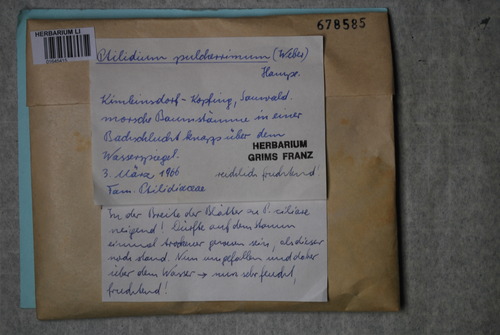 HERBARIUM LI
678585
Ptilidium pulcherrimum (Weber)
Hampe.
Kimleinsdorf - Kopfing, Sauwald.
morsche Baumstämme in einer
Bachschlucht knapp über dem
Wasserspiegel.
HERBARIUM
GRIMS FRANZ
3. März 1966 reichlich fruchtend!
Fam. Ptilidiaceae
In der Breite der Blätter zu P. ciliare
neigend! dürfte auf dem Stamm
einmal trockener gewesen sein, als dieser
noch stand. Nun umgefallen und daher
über dem Wasser → nun sehr feucht,
fruchtend!